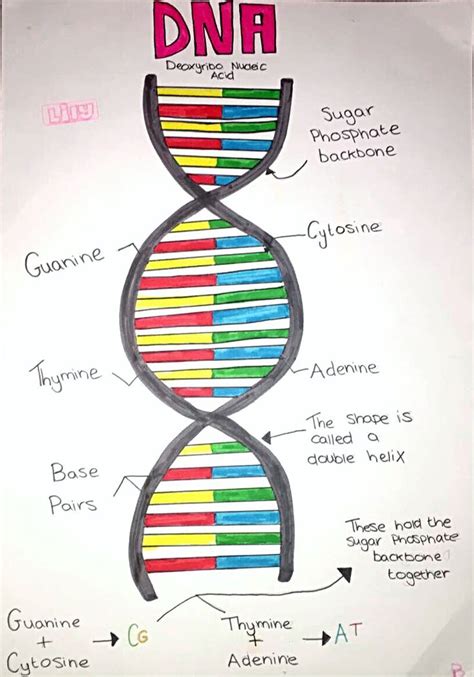 DNA
Deoxyribo Nucleic
Acid
Lily
Sugar
Phosphate
backbone
Guanine
Cytosine
Thymine
Adenine
The shape is
called a
double helix
Base
Pairs
These hold the
sugar Phosphate
backbone
together
Guanine
+
Cytosine
CG
Thymine
+
Adenine
AT
B